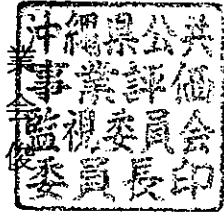 沖縄県公共
事業評価
監視委員会
委員長印